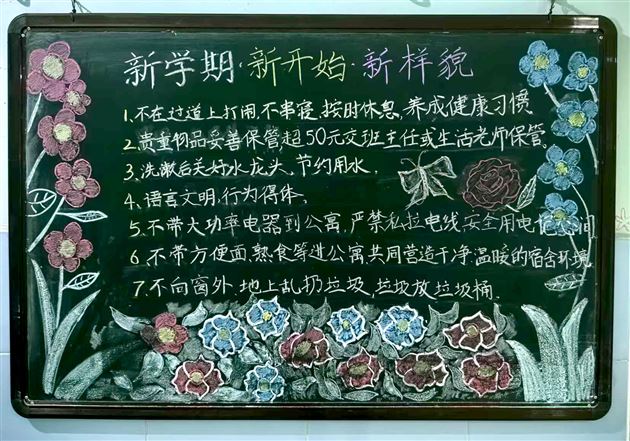 新学期·新开始·新样貌
1、不在过道上打闹,不串寝,按时休息,养成健康习惯
2、贵重物品妥善保管超50元交班主任或生活老师保管.
3、洗漱后关好水龙头,节约用水.
4、语言文明,行为得体.
5、不带大功率电器到公寓,严禁私拉电线安全用电
6、不带方便面.熟食等进公寓共同营造干净.温暖的宿舍环境.
7、不向窗外.地上乱扔垃圾,垃圾放垃圾桶.